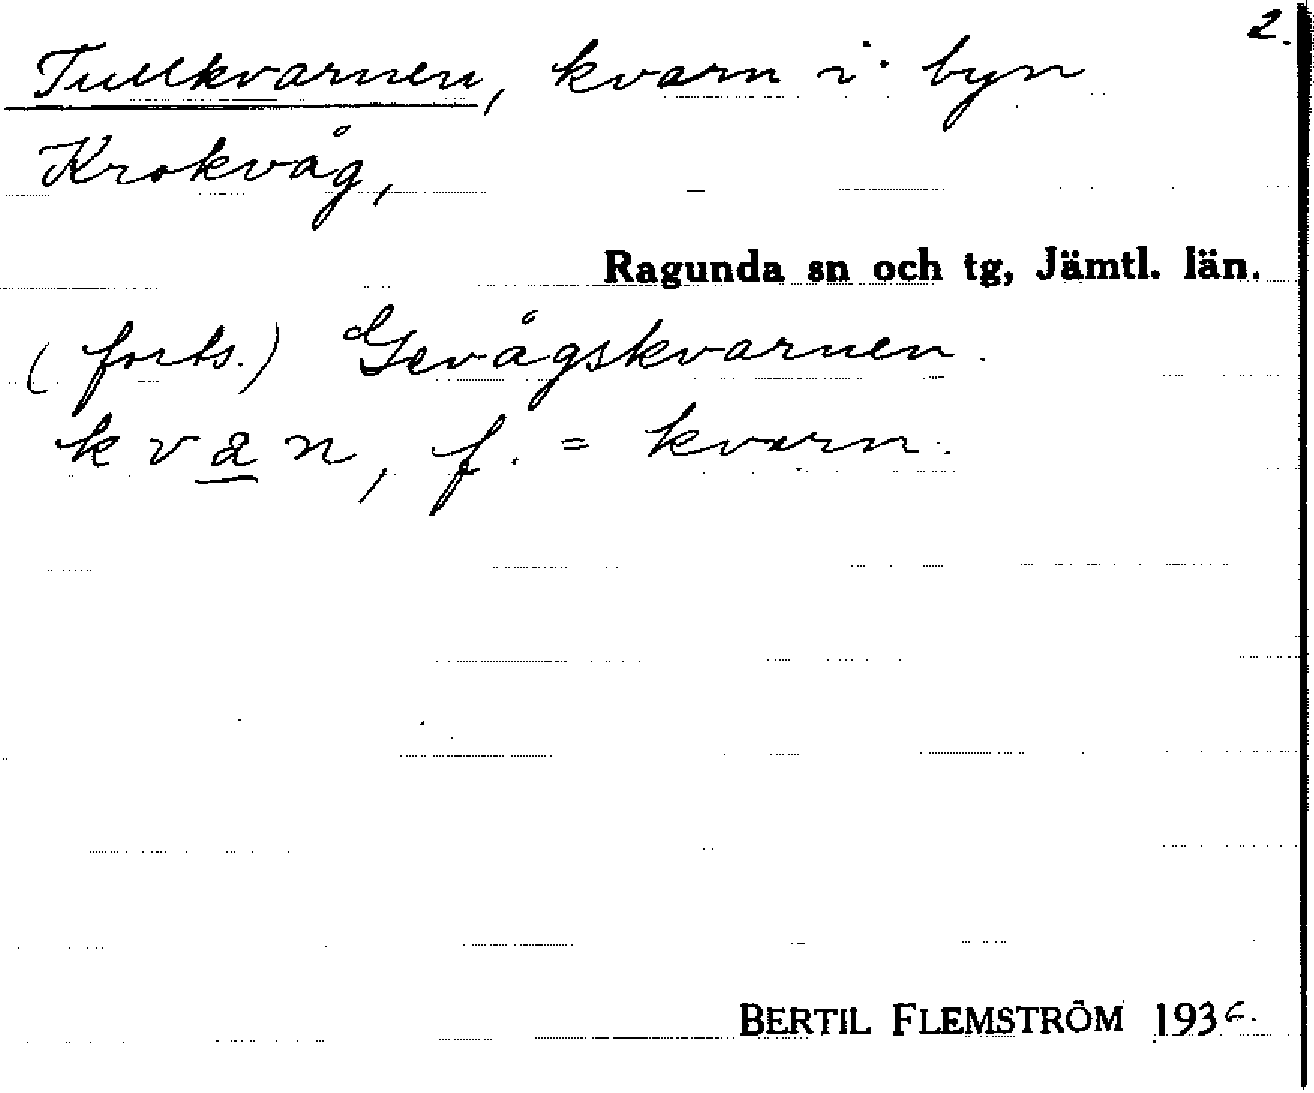 2.
Tullkvarnen, kvarn i byn
Krokvåg,
Ragunda sn och tg, Jämtl. län.
(forts.) Gevågskvarnen.
kvan, f. = kvarn.
BERTIL FLEMSTRÖM 1936.